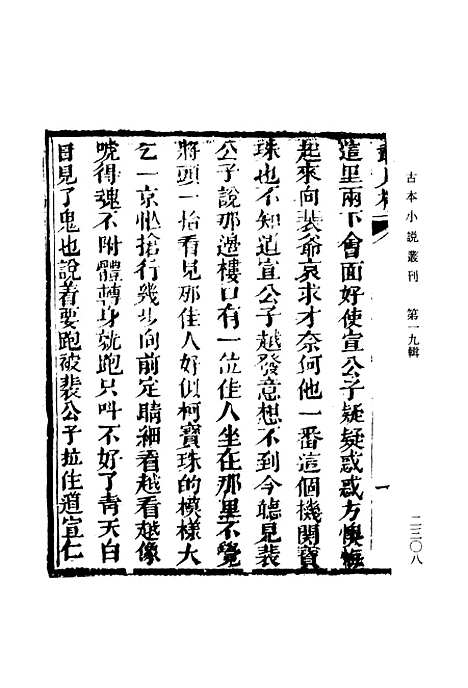 古本小說叢刊　第一九輯
二三〇八
一
這里兩下會面好使宣公子疑疑惑惑方懊悔
起來向裴爺哀求才奈何他一番這個機関寶
珠也不知道宣公子越發意想不到今聽見裴
公子說那邊樓口有一位佳人坐在那里不覺
將頭一抬看見那佳人好似柯寶珠的模樣大
吃一京忙搶行幾步向前定睛細看越看越像
唬得魂不附體轉身就跑只叫不好了青天白
日見了鬼也說着要跑被裴公子拉住道宣仁